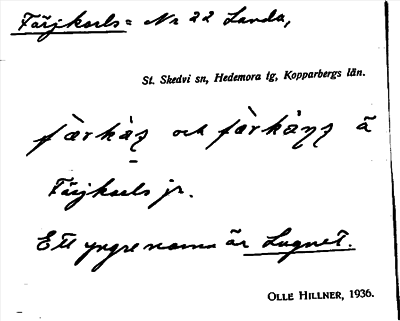 Färjkarls = Nr 22 Landa,
St. Skedvi sn, Hedemora tg, Kopparbergs län.
och à
Färjkarls jr.
Ett yngre namn är Lugnet.
OLLE HILLNER, 1936.